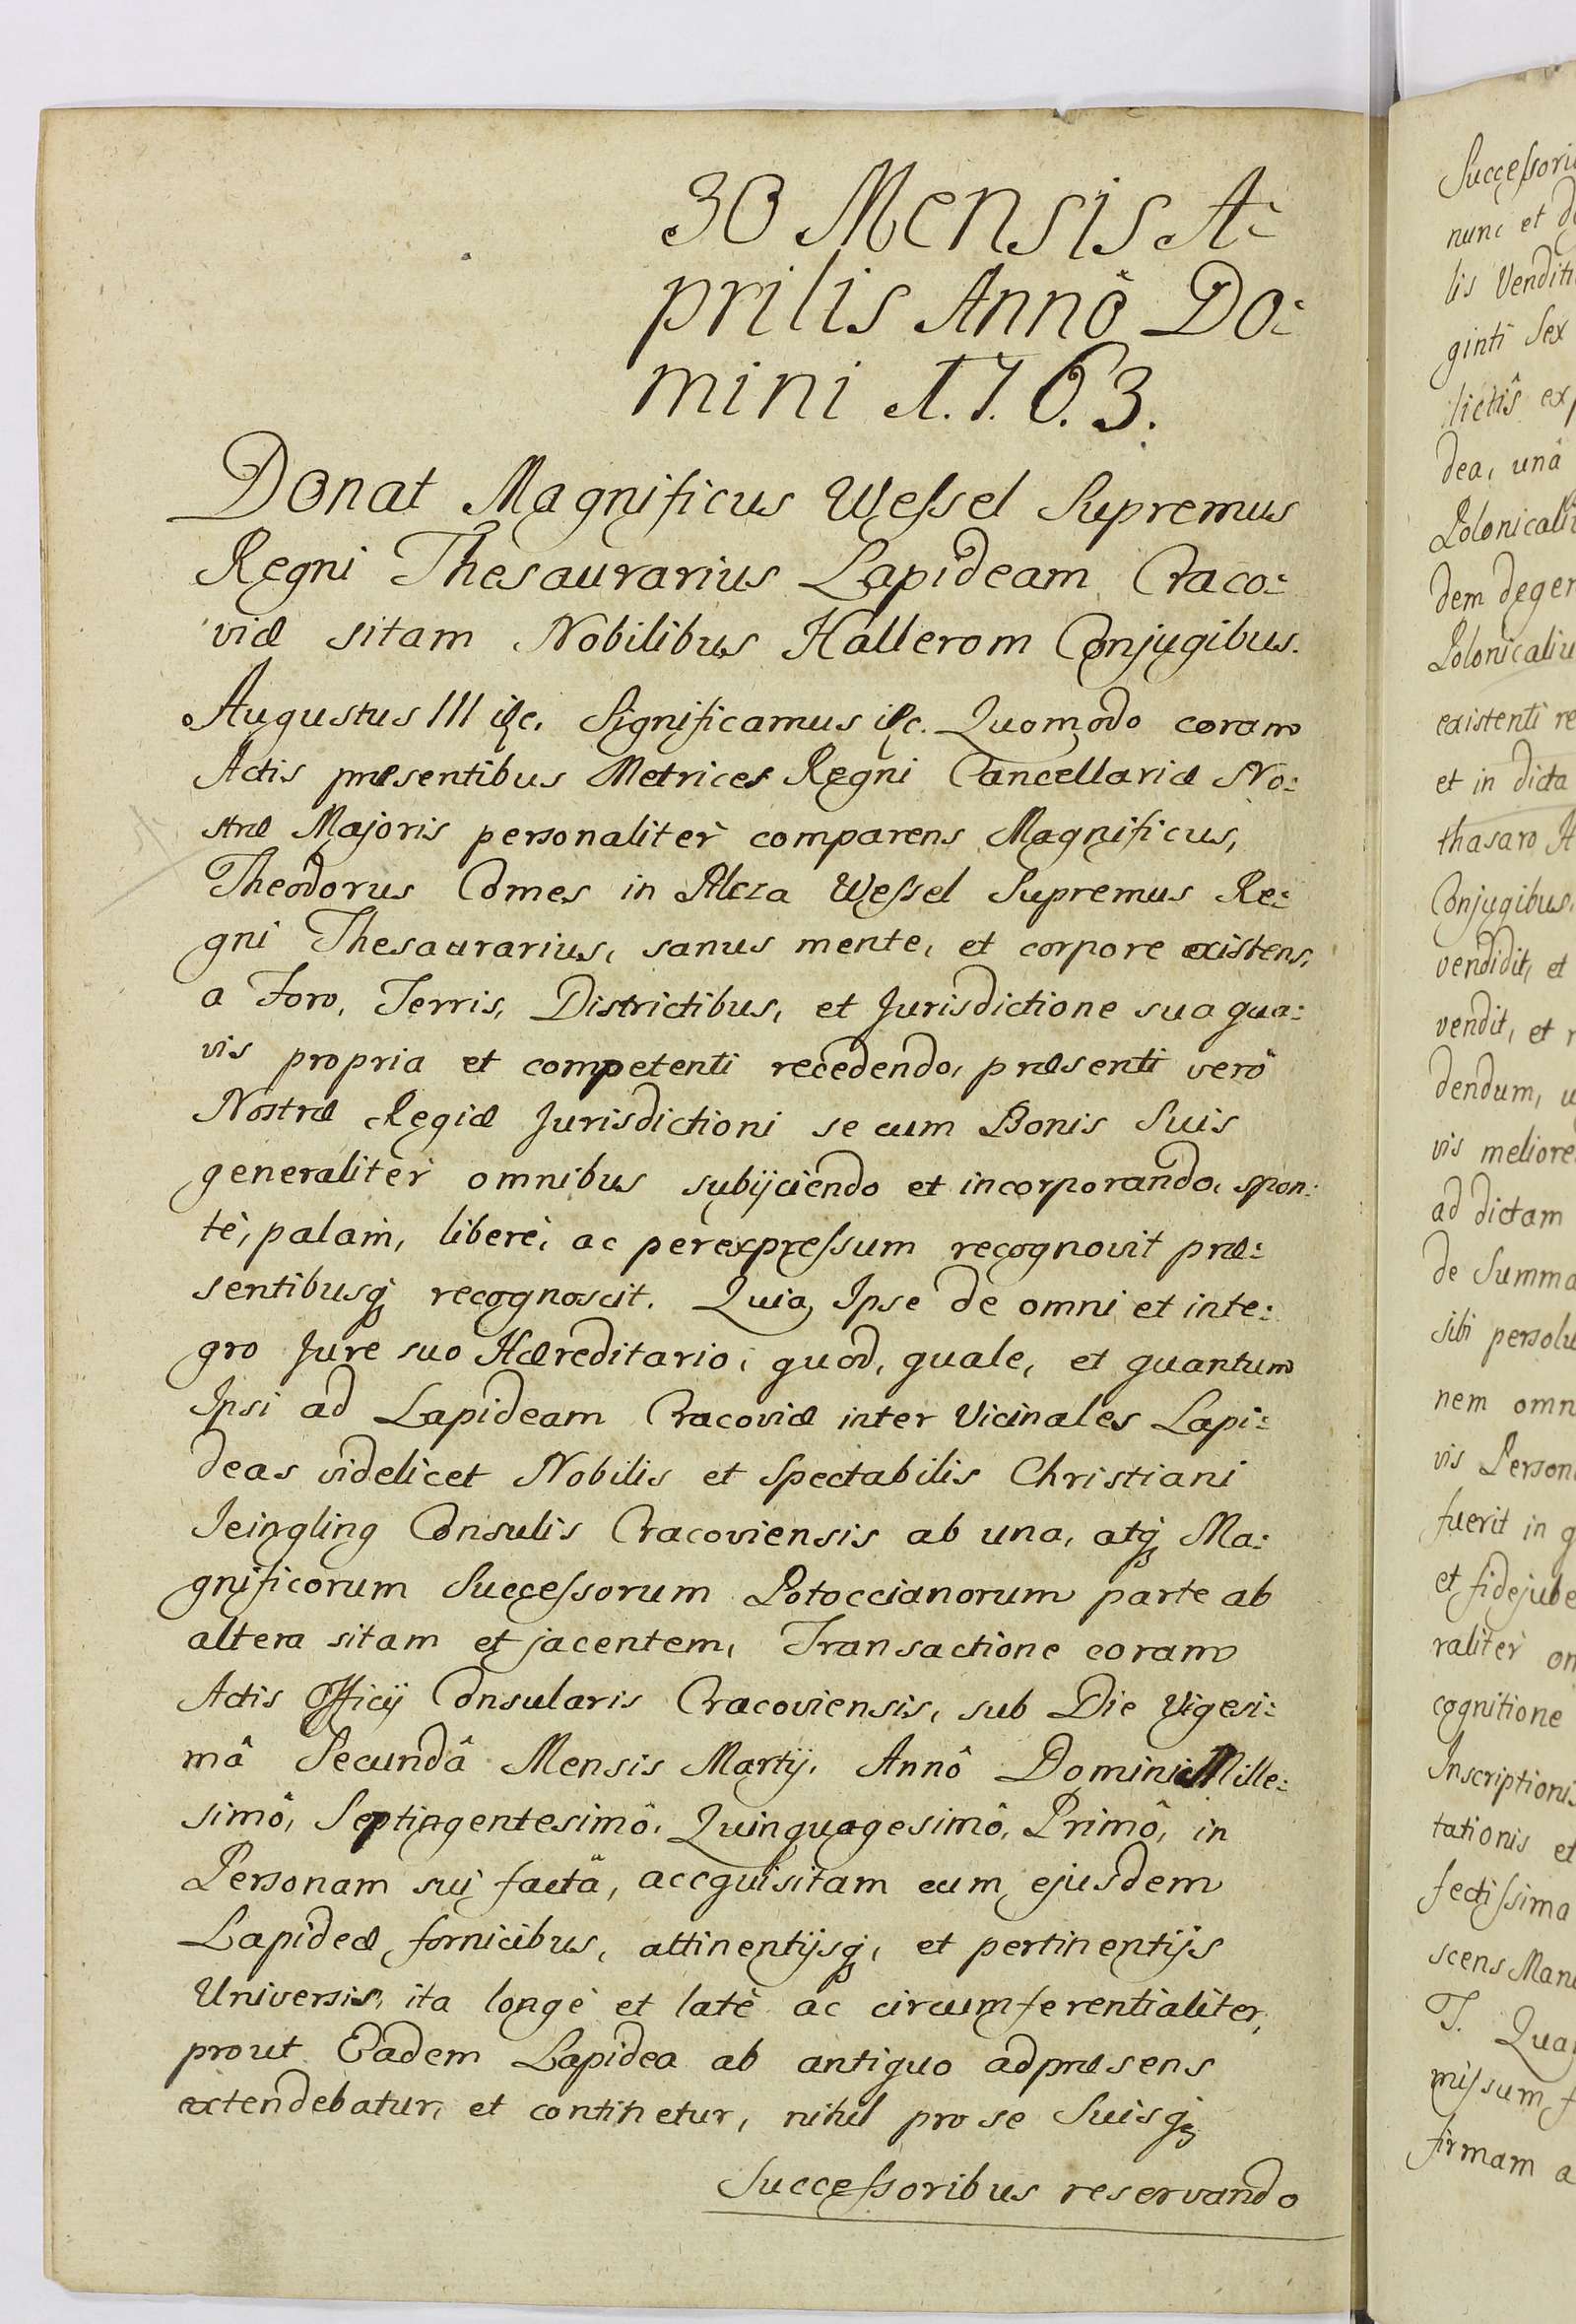 30 Mensis A:
prilis Annô Do:
mini 1.7.6.3.
Donat Magnificus Weſsel Supremus
Regni Thesaurarius Lapideam Craco:
viæ sitam Nobilibus Hallerom Conjugibus.
Augustus III etc. Significamus etc. Quomodo coram
Actis præsentibus Metrices Regni Cancellariæ No:
stræ Majoris personaliter comparens Magnificus,
Theodorus Comes in Weſsel Supremus Re:
gni Thesaurarius, sanus mente, et corpore existens,
a Foro, Terris, Districtibus, et Jurisdictione sua qua:
vis propria et competenti recedendo, præsenti verò
Nostræ Regiæ Jurisdictioni se cum Bonis Suis
generalitèr omnibus subijciendo et incorporando, spon:
tè, palam, liberè, ac per expreſsum recognovit præ:
sentibusq; recognoscit. Quia, Ipse de omni et inte:
gro Jure suo Hæreditario, quod, quale, et quantum
Ipsi ad Lapideam Cracoviæ inter Vicinales Lapi:
deas videlicet Nobilis et Spectabilis Christiani
Jeingling Consulis Cracoviensis ab una, atq; Ma:
gnificorum Succeſsorum Potoccianorum parte ab
altera sitam et jacentem, Transactione coram
Actis Officij Consularis Cracoviensis, sub Die Vigesi:
mâ Secundâ Mensis Martij. Annô Domini Mille:
simô, Septingentesimô, Quinquagesimô, Primô, in
Personam sui factâ, accquisitam cum ejusdem
Lapideæ fornicibus, attinentijsq;, et pertinentijs
Universis, ita longè et latè ac circumferentialiter,
prout Eadem Lapidea ab antiquo ad præsens
extendebatur, et continetur, nihil pro se Suisq;
Succeſsoribus reservando
nunc et
lis
ginti Sex
lictis
dea, unâ
dem
existenti
et in dicta
thasaro
Conjugibus,
vendidit, et
vendit, et
dendum,
vis
ad dictam
de
sibi
nem
vis
fuerit in
et
raliter
cognitione
tationis et
scens
T.
firmam